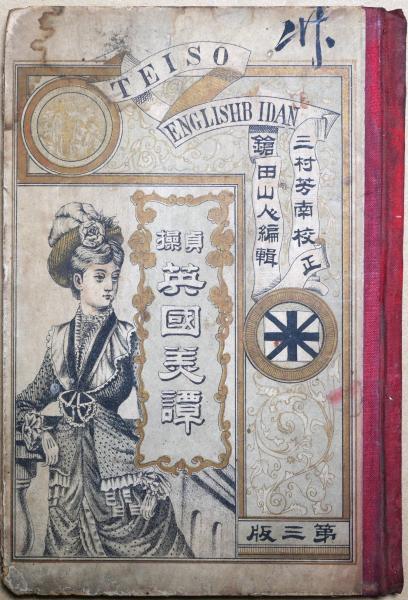 TEISO
ENGLISHB IDAN
三村芳南校正
鎗田山人編輯
貞操
英國美譚
第三版